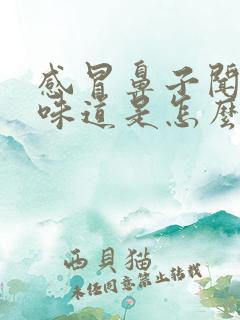 感冒鼻子聞
味道是怎麼
西貝貓
未經同意禁止轉載